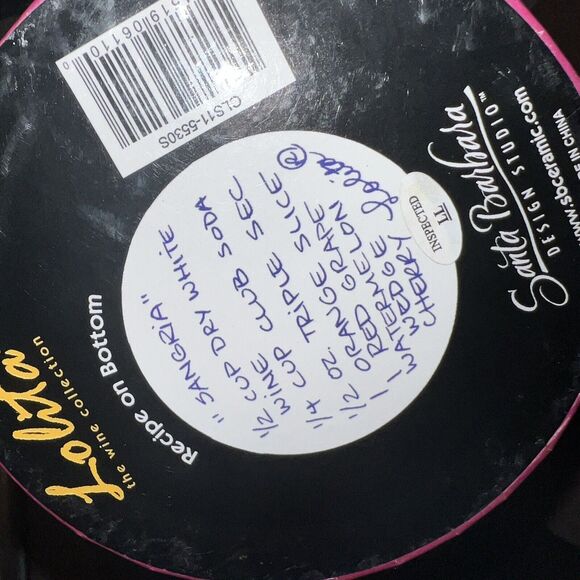 Lolita
the wine collection
Recipe on Bottom
"SANGRIA"
1/2 CUP DRY WHITE
WINE
1/4 CUP CLUB SODA
1/2 OZ. TRIPLE SEC
1 ORANGE SLICE
1 RED GRAPE
WATERMELON
WEDGE
CHERRY
Lolita®
INSPECTED
LL
CLS11-5530S
Santa Barbara
DESIGN STUDIO™
www.sbceramic.com
E IN CHINA